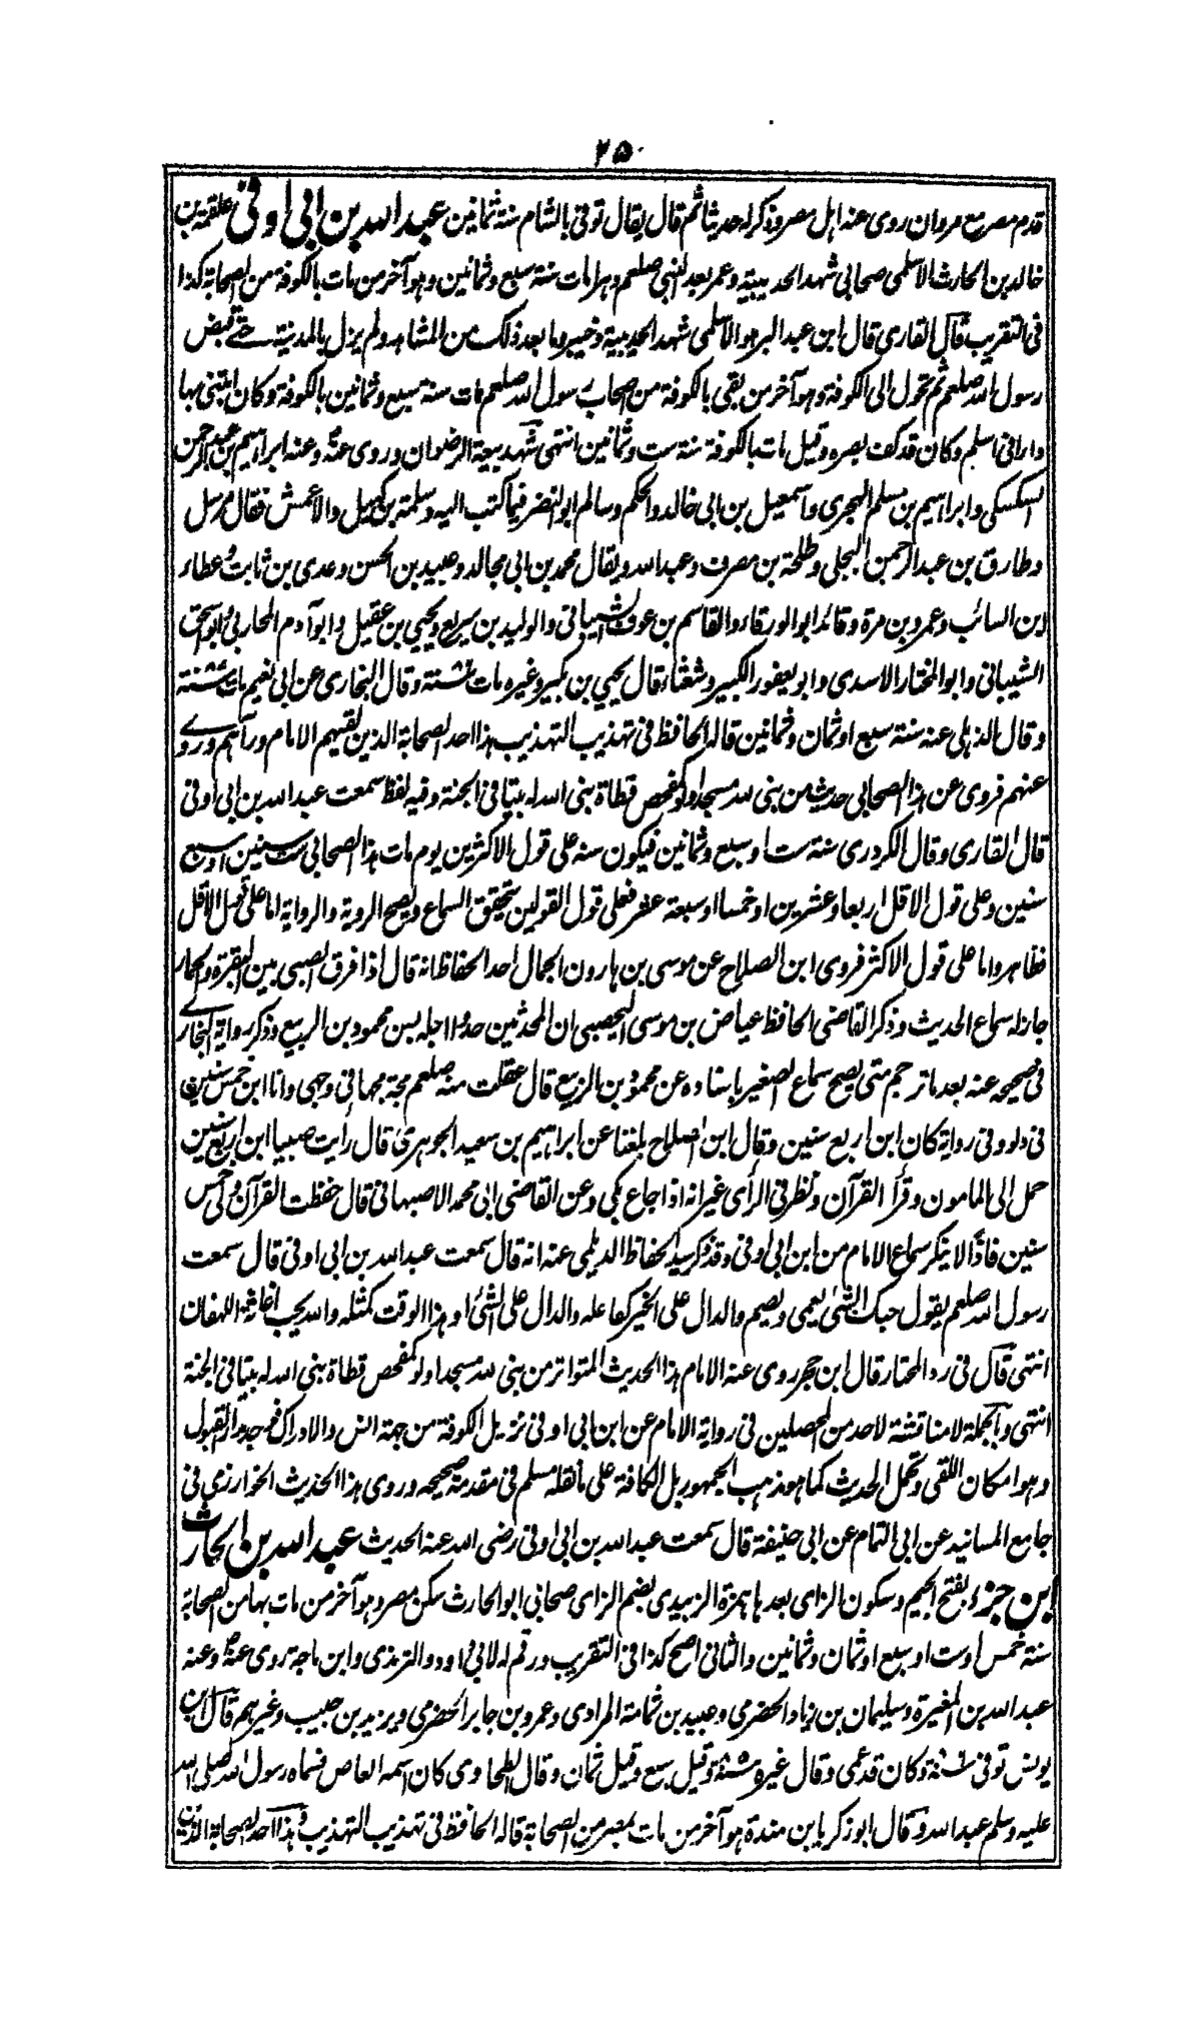 ٢٥
قدم مصر مع مروان روى عنه اهل مصر وذكر له حديثا ثم قال يقال توفى بالشام سنة ثمانين عبد الله بن ابى اوفى علقمة بن
خالد بن الحارث الاسلمى صحابى شهد الحديبية وعمر بعد النبى صلعم دهرا مات سنة سبع وثمانين وهو آخر من مات بالكوفة من الصحابة كذا
فى التقريب قال القارى قال ابن عبد البر هو الاسلمى شهد الحديبية وخيبر وما بعد ذلك من المشاهد ولم يزل بالمدينة حتے قبض
رسول الله صلعم ثم تحول الى الكوفة وهو آخر من بقى بالكوفة من اصحاب رسول الله صلعم مات سنة سبع وثمانين بالكوفة وكان ابتنى بها
دارا فى اسلم وكان قد كف بصره وقيل مات بالكوفة سنة ست وثمانين انتهى شهد بيعة الرضوان وروى عنه وعنه ابراهيم بن عبد الرحمن
السكسكى وابراهيم بن مسلم الهجرى واسمعيل بن ابى خالد والحكم وسالم ابو النضر فيما كتب اليه وسلمة بن كهيل والاعمش فقال مرسل
وطارق بن عبد الرحمن البجلى وطلحة بن مصرف وعبد الله ويقال محمد بن ابى مجالد وعبيد بن الحسن وعدى بن ثابت وعطار
ابن السائب وعمرو بن مرة وقائد ابو الورقاء والقاسم بن عوف الشيبانى والوليد بن سريع ويحيى بن عقيل وابو آدم المحاربى وابو اسحق
الشيبانى وابو المختار الاسدى وابو يعفور الكبير وشعثاء قال يحيى بن بكير وغيره مات سنة وقال البخارى عن ابى نعيم مات سنة
وقال الذهلى عنه سنة سبع او ثمان وثمانين قاله الحافظ فى تهذيب التهذيب هذا احد الصحابة الذين لقيهم الامام ورآهم وروے
عنهم فروى عن هذا الصحابى حديث من بنى لله مسجدا ولو كمفحص قطاة بنى الله له بيتا فى الجنة وفيه لفظ سمعت عبد الله بن ابى اوفى
قال القارى وقال الكردرى سنة ست او سبع وثمانين فيكون سنه على قول الاكثرين يوم مات هذا الصحابى ست سنين او سبع
سنين وعلى قول الاقل اربعا وعشرين او خمسا او سبعة عشر فعلى قول القولين يتحقق السماع ويصح الروية والرواية اما على قول الاقل
فظاهر واما على قول الاكثر فروى ابن الصلاح عن موسى بن هارون الجمال احد الحفاظ انه قال اذا فرق الصبى بين البقرة والحمار
جاز له سماع الحديث وذكر القاضى الحافظ عياض بن موسى اليحصبى ان المحدثين حدوا اجله بسن محمود بن الربيع وذكر رواية البخارے
فى صحيحه عنه بعد ما ترجم متى يصح سماع الصغير باسناده عن محمود بن الربيع قال عقلت منه صلعم مجة مجها فى وجهى وانا ابن خمس سنين
فى دلو وفى رواية كان ابن اربع سنين وقال ابن الصلاح بلغنا عن ابراهيم بن سعيد الجوهرى قال رأيت صبيا ابن اربع سنين
حمل الى المامون وقرأ القرآن ونظر فى الرأى غير انه اذا جاع بكى وعن القاضى ابى محمد الاصبهانى قال حفظت القرآن ولى خمس
سنين فاذا لا ينكر سماع الامام من ابن ابى اوفى وقد ذكر سيد الحفاظ الديلمى عنه انه قال سمعت عبد الله بن ابى اوفى قال سمعت
رسول الله صلعم يقول حبك الشئ يعمى ويصم والدال على الخير كفاعله والدال على الشئ او هذا الوقت كمثله والله يحب اغاثة اللهفان
انتهى قال فى رد المحتار قال ابن حجر روى عنه الامام هذا الحديث المتواتر من بنى لله مسجدا ولو كمفحص قطاة بنى الله له بيتا فى الجنة
انتهى وبالجملة لا مناقشة لاحد من المحصلين فى رواية الامام عن ابن ابى اوفى نزيل الكوفة من جهة السن والادراك فهو جدير القبول
وهو امكان اللقى وتحمل الحديث كما هو مذهب الجمهور بل الكافة على ما نقله مسلم فى مقدمة صحيحه وروى هذا الحديث الخوارزمى فى
جامع المسانيد عن ابى التمام عن ابى حنيفة قال سمعت عبد الله بن ابى اوفى رضى الله عنه الحديث عبد الله بن الحارث
ابن جزء بفتح الجيم وسكون الزاى بعدها همزة الزبيدى بضم الزاى صحابى ابو الحارث سكن مصر وهو آخر من مات بها من الصحابة
سنة خمس او ست او سبع او ثمان وثمانين والثانى اصح كذا فى التقريب ورقم له لابى داود والترمذى وابن ماجة روى عنه وعنه
عبد الله بن المغيرة وسليمان بن زياد الحضرمى وعبيد بن ثمامة المرادى وعمرو بن جابر الحضرمى ويزيد بن حبيب وغيرهم قال ابن
يونس توفى سنة وكان قد عمى وقال غيره سنة وقيل سبع وقيل ثمان وقال الطحاوى كان اسمه العاص فسماه رسول الله صلى الله
عليه وسلم عبد الله وقال ابو زكريا بن مندة هو آخر من مات بمصر من الصحابة قاله الحافظ فى تهذيب التهذيب وهذا احد الصحابة الذين